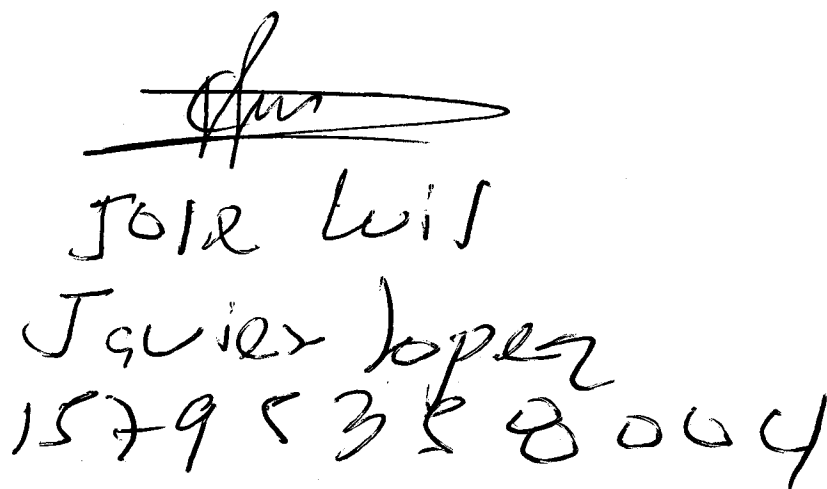 Jose Luis
Javier Lopez
15795358004